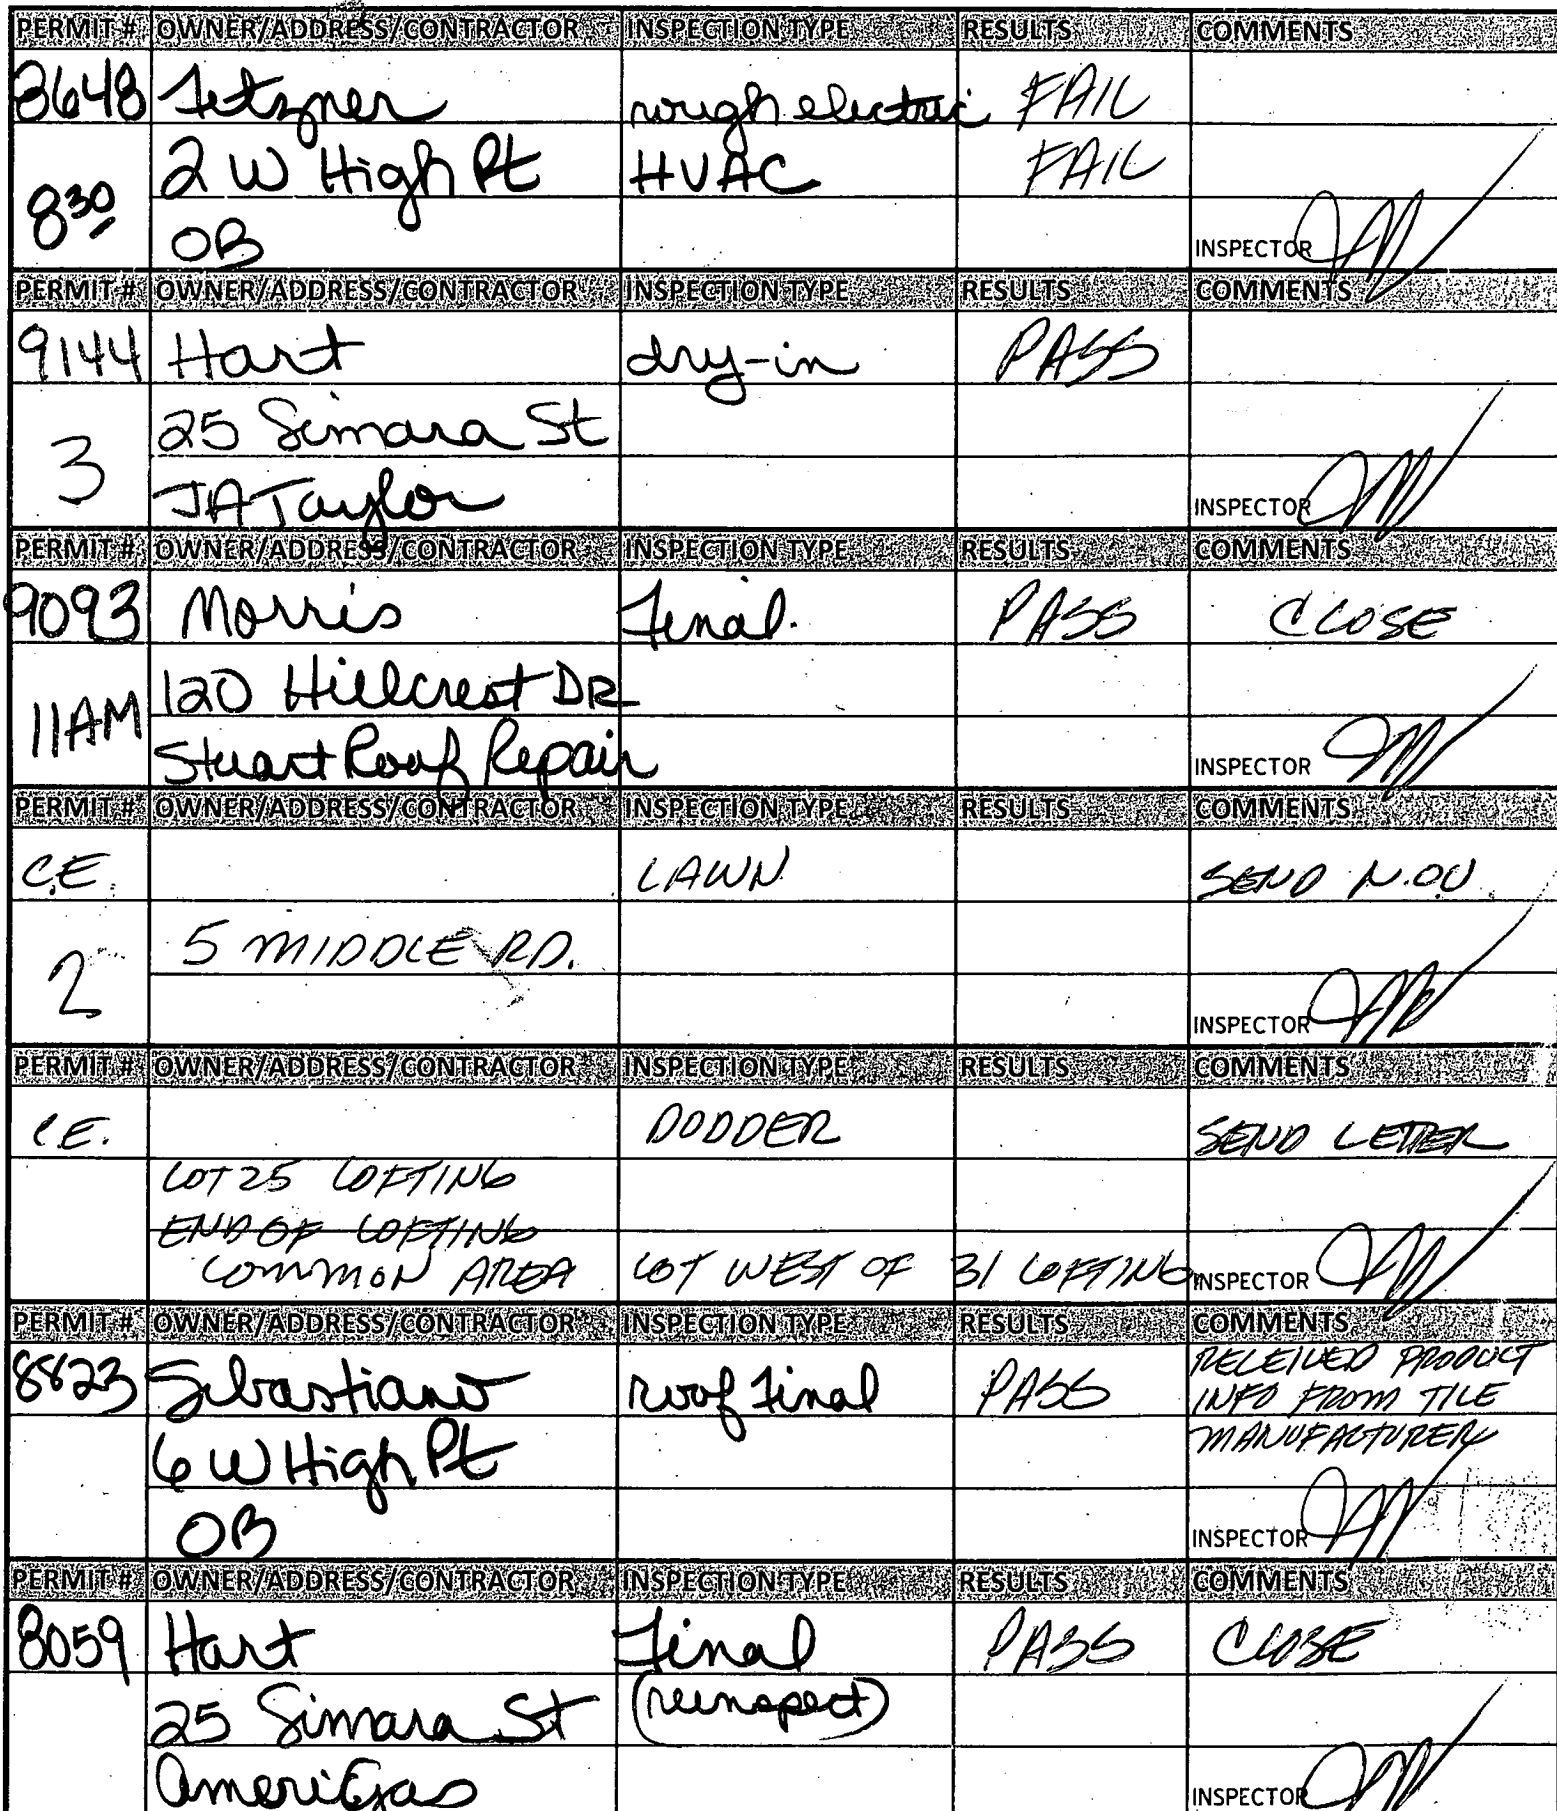 PERMIT # OWNER/ADDRESS/CONTRACTOR INSPECTION TYPE RESULTS COMMENTS
8648 Tetzner rough electric FAIL
2 W High Pt HVAC FAIL
8 30
OB INSPECTOR
PERMIT # OWNER/ADDRESS/CONTRACTOR INSPECTION TYPE RESULTS COMMENTS
9144 Hart dry-in PASS
25 Simara St
3
JA Taylor INSPECTOR
PERMIT # OWNER/ADDRESS/CONTRACTOR INSPECTION TYPE RESULTS COMMENTS
9093 Morris Final. PASS CLOSE
120 Hillcrest DR
11AM
Stuart Roof Repair INSPECTOR
PERMIT # OWNER/ADDRESS/CONTRACTOR INSPECTION TYPE RESULTS COMMENTS
C.E. LAWN SEND N.OV
5 MIDDLE RD.
2
INSPECTOR
PERMIT # OWNER/ADDRESS/CONTRACTOR INSPECTION TYPE RESULTS COMMENTS
C.E. DODDER SEND LETTER
LOT 25 LOFTING
END OF LOFTING
COMMON AREA LOT WEST OF 31 LOFTING INSPECTOR
PERMIT # OWNER/ADDRESS/CONTRACTOR INSPECTION TYPE RESULTS COMMENTS
8823 Sebastiano roof final PASS RECEIVED PRODUCT
INFO FROM TILE
6 W High Pt MANUFACTURER
OB INSPECTOR
PERMIT # OWNER/ADDRESS/CONTRACTOR INSPECTION TYPE RESULTS COMMENTS
8059 Hart Final PASS CLOSE
25 Simara St (reinspect)
AmeriGas INSPECTOR